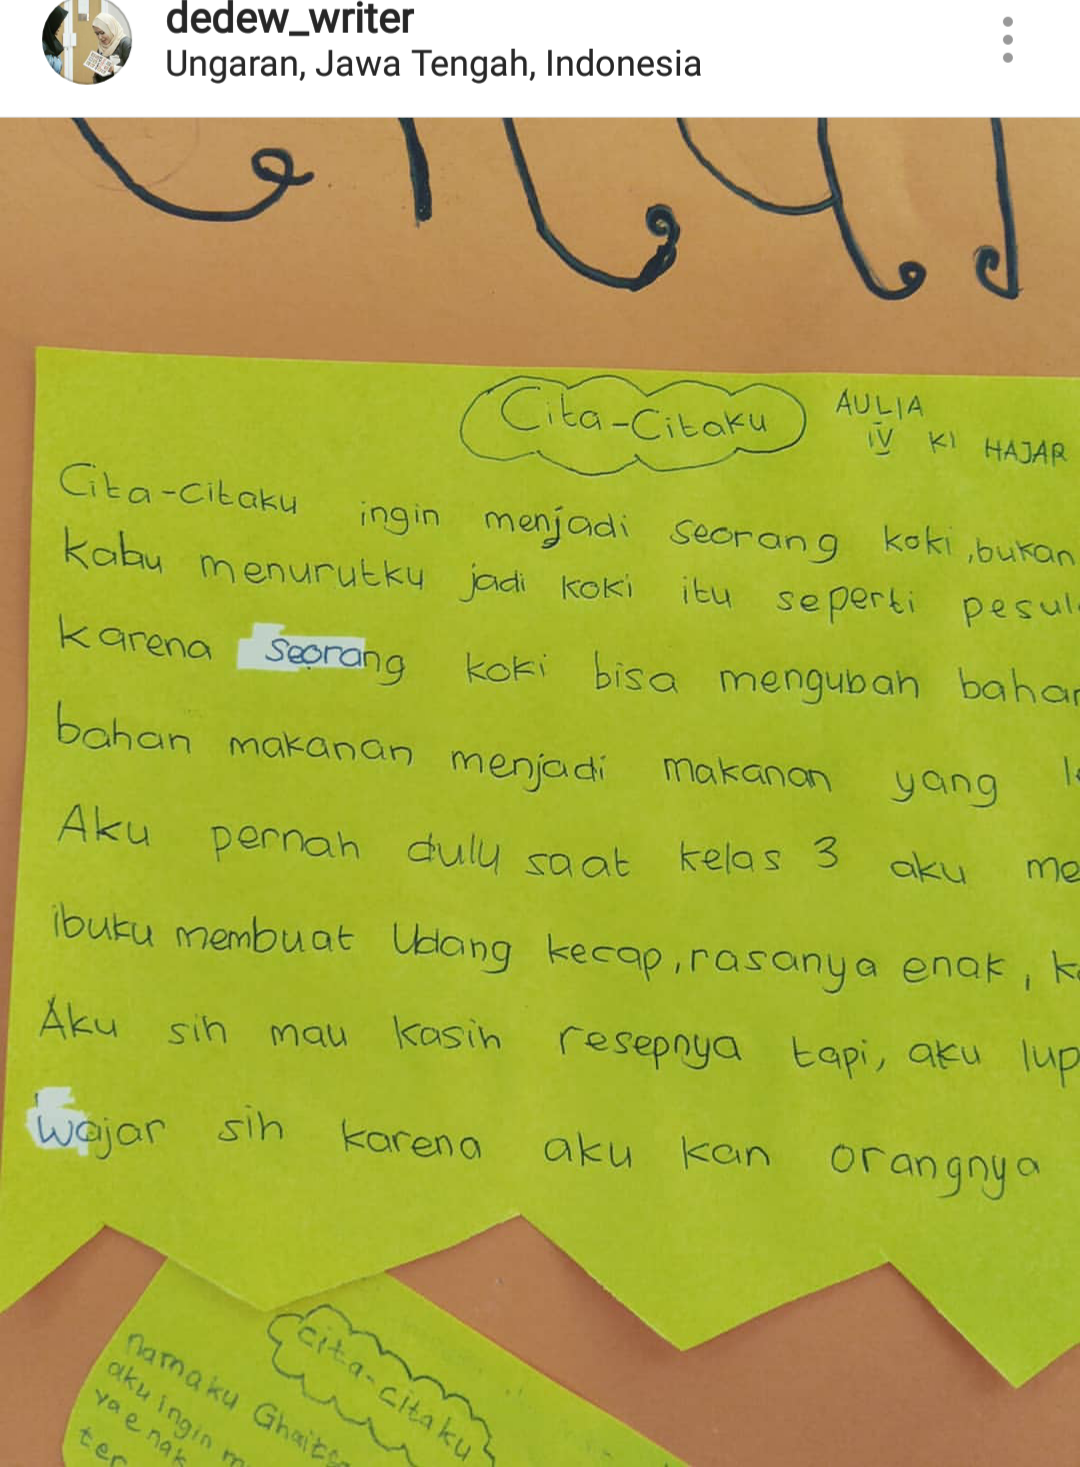 dedew_writer
Ungaran, Jawa Tengah, Indonesia
Cita-Citaku
AULIA
IV KI HAJAR
Cita-citaku ingin menjadi seorang koki, bukan
kabu menurutku jadi koki itu seperti pesul
karena seorang koki bisa mengubah bahan
bahan makanan menjadi makanan yang
Aku pernah dulu saat kelas 3 aku me
ibuku membuat Udang kecap, rasanya enak,
Aku sih mau kasih resepnya tapi, aku lup
wajar sih karena aku kan orangnya
cita-citaku
namaku
aku ingin m
ya enak
ter